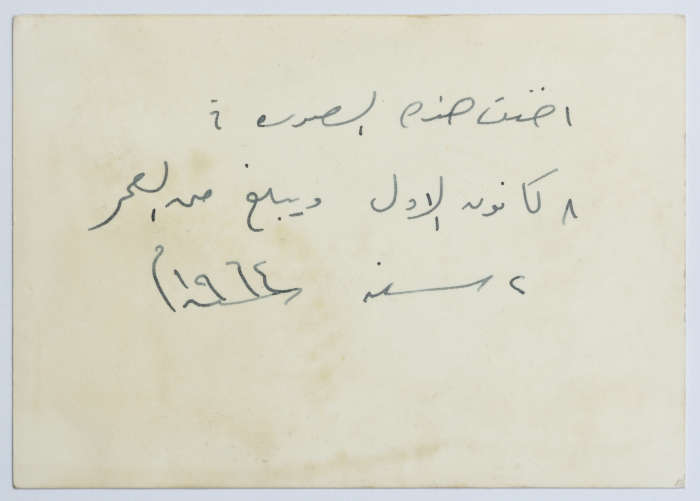 اخذت هذه الصوره
٨ كانون الاول ويبلغ من العمر
٢ سنه سنة ١٩٦٤م